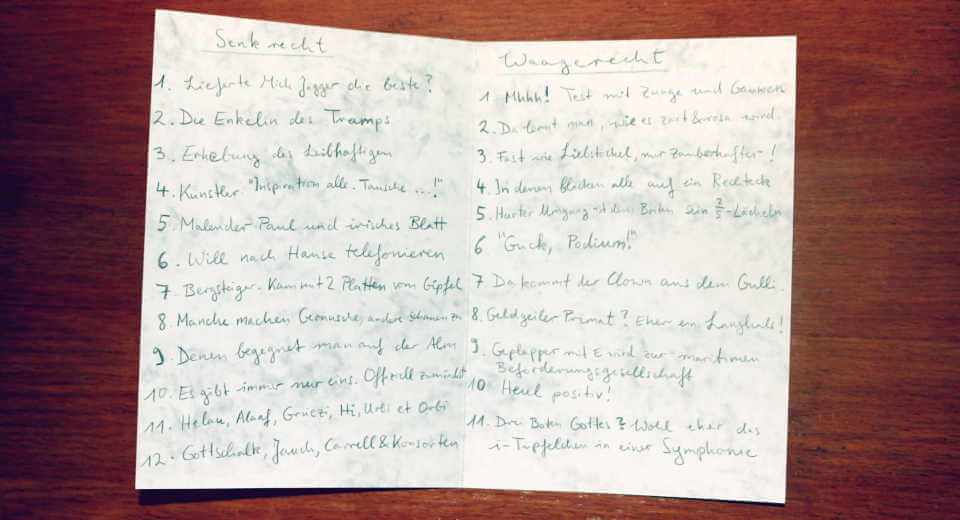 Senkrecht
1. Lieferte Mick Jagger die beste?
2. Die Enkelin des Tramps
3. Erhebung des Leibhaftigen
4. Künstler "Inspiration alle. Tausche ...!"
5. Malender Paul und irisches Blatt
6. Will nach Hause telefonieren
7. Bergsteiger. Kam mit 2 Platten vom Gipfel
8. Manche machen Geräusche, andere schauen zu
9. Denen begegnet man auf der Alm
10. Es gibt immer nur eins. Offiziell zumindest
11. Helau, Alaaf, Grüezi, Hi, Urbi et Orbi
12. Gottschalk, Jauch, Carrell & Konsorten
Waagerecht
1. Mhhh! Test mit Zunge und Gaumen
2. Da lernt man, wie es zart & rosa wird.
3. Fast wie Liebstöckel, nur zauberhafter-!
4. In denen blicken alle auf ein Rechteck
5. Harter Umgang mit dem Briten sein 3/5-Lächeln
6 "Guck, Podium!"
7 Da kommt der Clown aus dem Gulli.
8. Geldgeiler Primat? Eher ein Langhals!
9. Geplapper mit E wird zur maritimen
Beförderungsgesellschaft
10 Heul positiv!
11. Drei Boten Gottes? Wohl eher das
i-Tüpfelchen in einer Symphonie